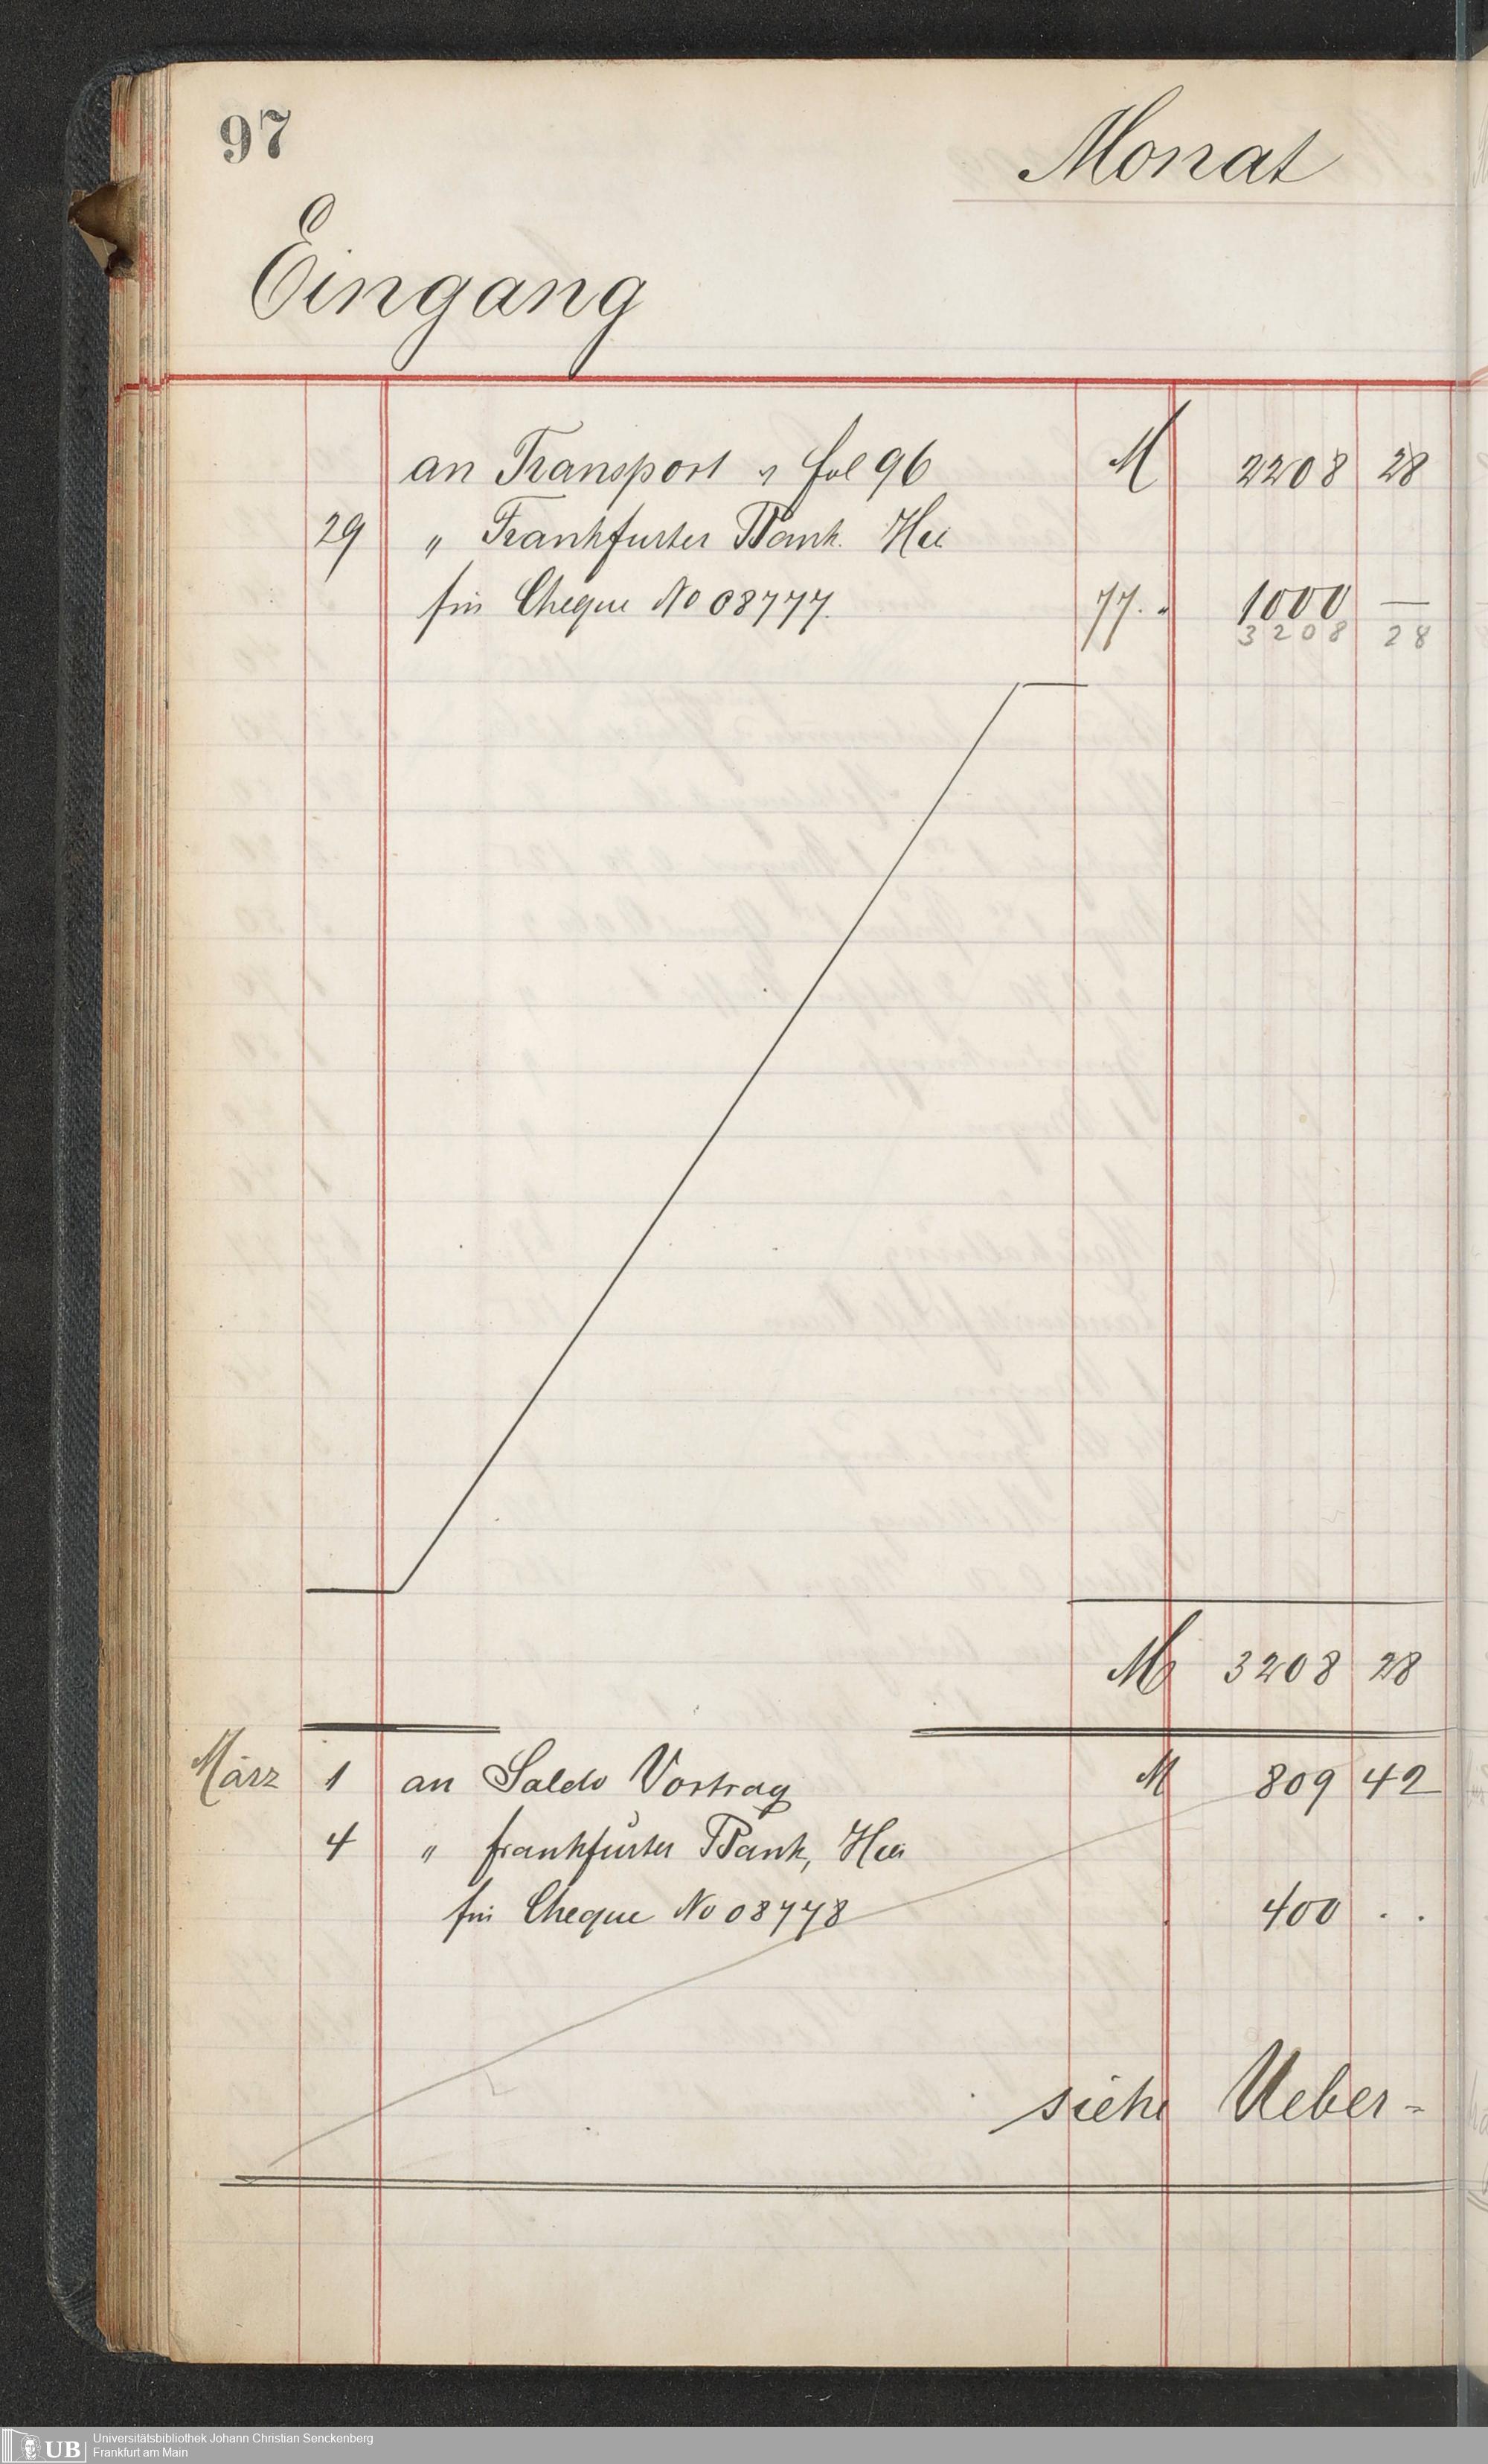 97
Monat
Eingang
an Transport v fol 96 M 2208 28
29 " Frankfurter Bank. Hier
für Cheque No 08777. 77. " 1000 —
3208 28
M 3208 28
März 1 an Saldo Vortrag M 809 42
4 " frankfurter Bank, Hier
für Cheque No 08778 400 . .
siehe Ueber-
UB Universitätsbibliothek Johann Christian Senckenberg
Frankfurt am Main